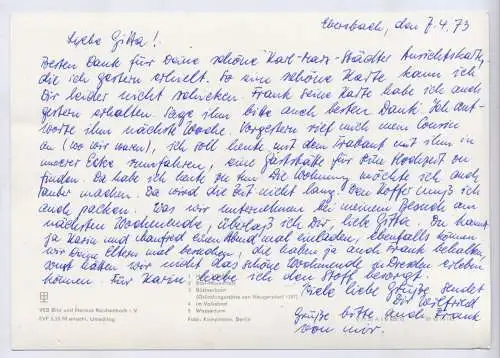 Ebersbach, den 7.4.73
Liebe Gitta!
Besten Dank für Deine schöne Karl-Marx-Städter Ansichtskarte,
die ich gestern erhielt. So eine schöne Karte kann ich
Dir leider nicht schicken. Frank seine Karte habe ich auch
gestern erhalten. Sage ihm bitte auch besten Dank. Ich ant-
worte ihm nächste Woche. Vorgestern rief mich mein Cousin
an (wo wir waren), ich soll heute mit dem Trabant mit ihm in
unserer Ecke rumfahren, eine Gaststätte für eine Hochzeit zu
finden. Da habe ich heute zu tun. Die Wohnung möchte ich auch
sauber machen. Da wird die Zeit nicht lang. Den Koffer muß ich
auch packen. Was wir unternehmen bei meinem Besuch am
nächsten Wochenende, überlaß ich Dir, liebe Gitta. Du kannst
ja Karin und Manfred einen Abend mal einladen, ebenfalls können
wir Eltern mal besuchen, die haben ja auch Frank behalten,
sonst hätten wir nicht das schöne Wochenende in Dresden erleben
können. Für Karin habe ich den Stoff besorgt.
Viele liebe Grüße sendet
Dir Wilfried
Grüße bitte auch Frank
von mir.
3
(Gründungsstätte von Neugersdorf 1657)
4 Im Volksbad
5
VEB Bild und Heimat Reichenbach i. V.
EVP 0,25 M einschl. Umschlag
Foto: Berlin